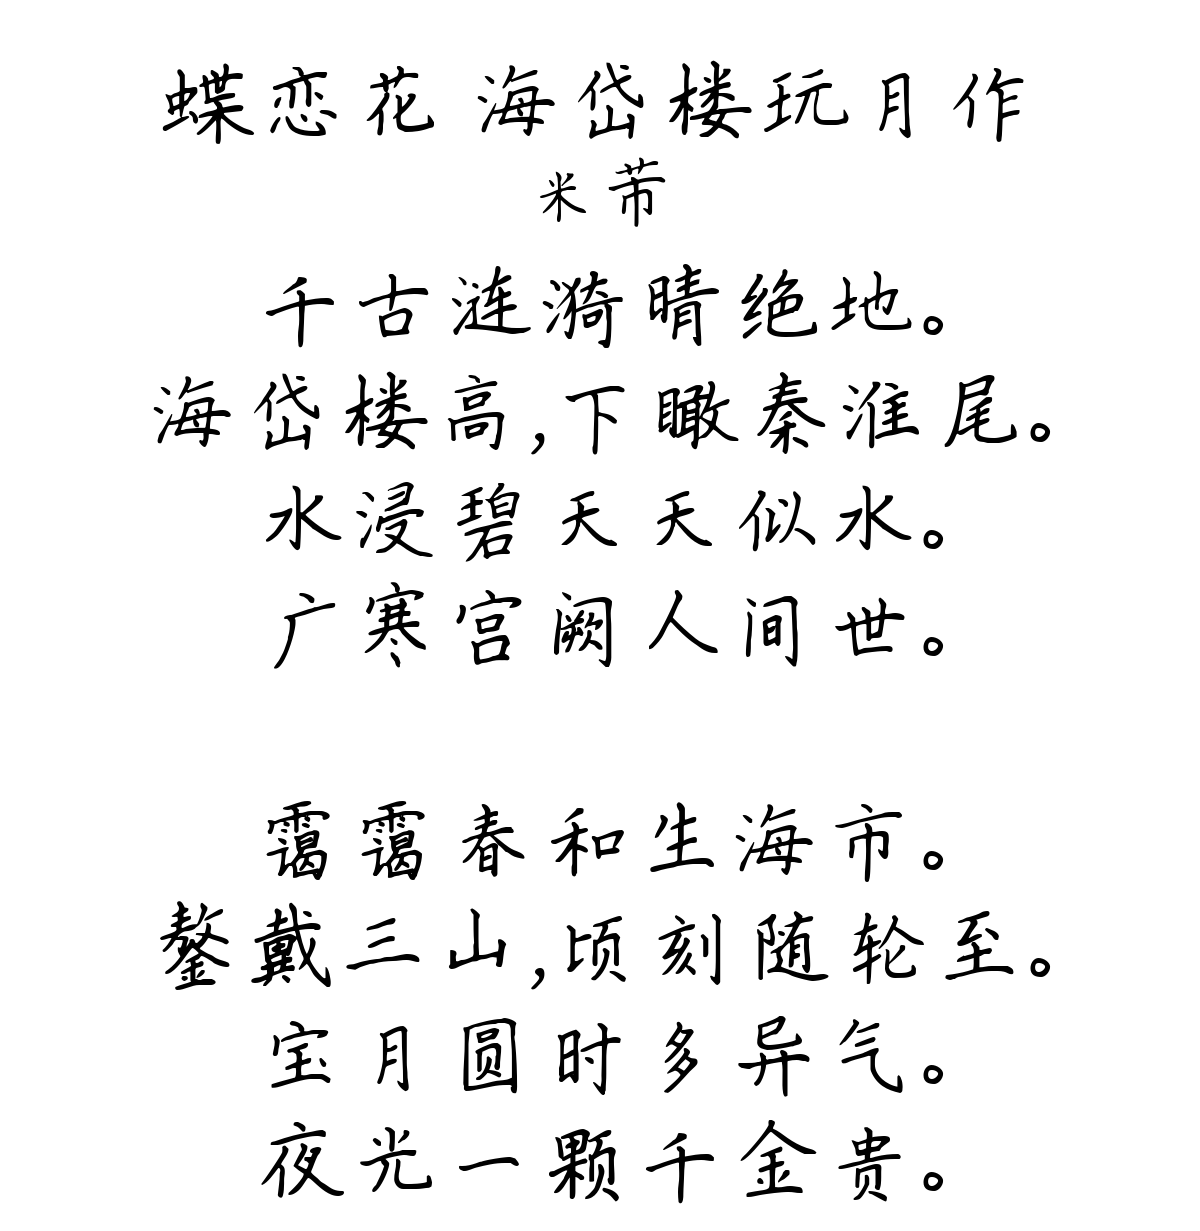 蝶恋花 海岱楼玩月作
米芾
千古涟漪晴绝地。
海岱楼高,下瞰秦淮尾。
水浸碧天天似水。
广寒宫阙人间世。
霭霭春和生海市。
鳌戴三山,顷刻随轮至。
宝月圆时多异气。
夜光一颗千金贵。